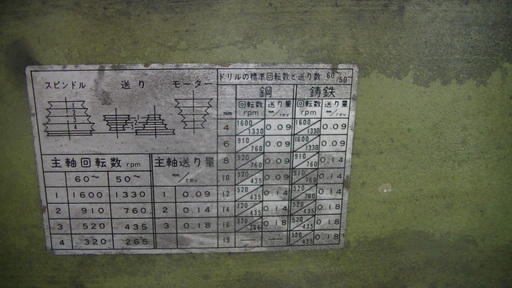 スピンドル 送り モーター
1
2
3
4
主軸回転数 rpm
60～ 50～
1 1600 1330
2 910 760
3 520 435
4 320 265
主軸送り量 ㎜/rev
1 0.09
2 0.14
3 0.18
ドリルの標準回転数と送り数 60～/50～
鋼 鋳鉄
㎜ 回転数 rpm 送り量 ㎜/rev 回転数 rpm 送り量 ㎜/rev
4 1600/1330 0.09 1600/1330 0.09
6 910/760 0.09 1600/1330 0.09
8 910/760 0.09 910/760 0.14
10 520/435 0.09 910/760 0.14
12 520/435 0.14 520/ 0.14
14 520/435 0.14 520/435 0.18
16 320/265 0.18 520/435 0.18
19 — — 320/ 0.18